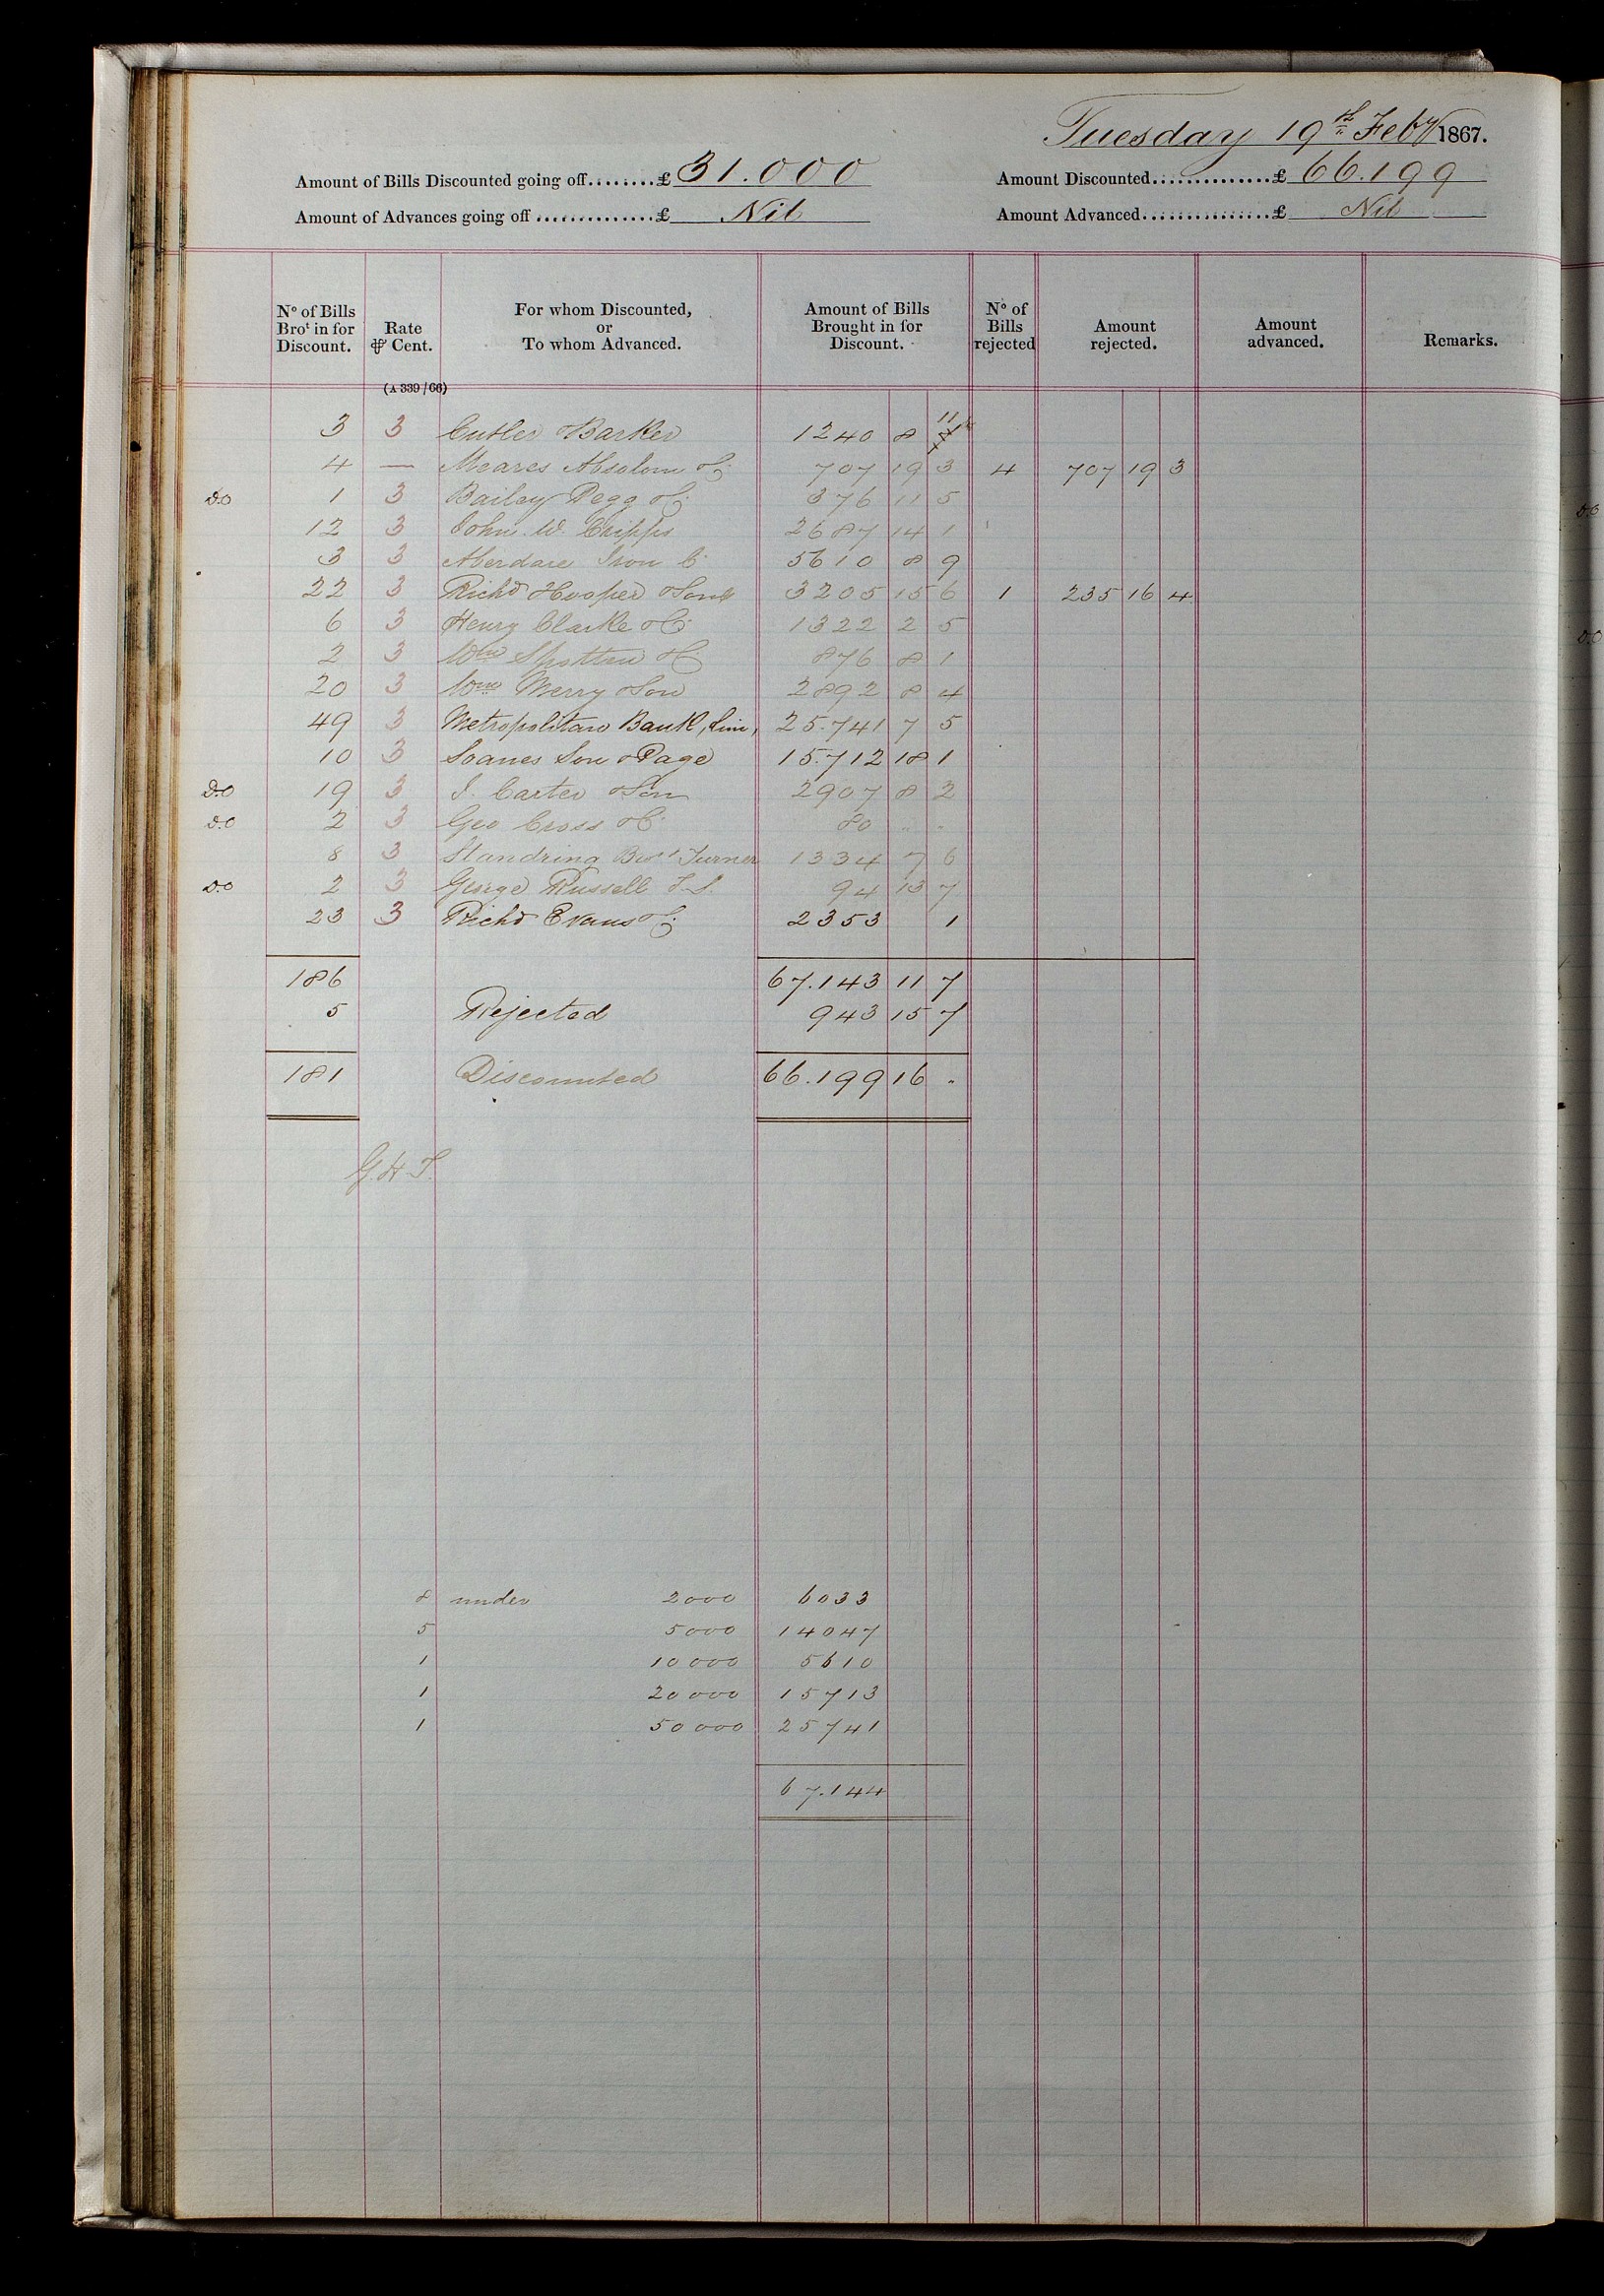 Tuesday 19th Feby 1867.
Amount of Bills Discounted going off........£ 31.000 Amount Discounted...............£ 66.199
Amount of Advances going off..............£ Nil Amount Advanced...............£ Nil
No of Bills Brot in for Discount. Rate ⅌ Cent. For whom Discounted, or To whom Advanced. Amount of Bills Brought in for Discount. No of Bills rejected Amount rejected. Amount advanced. Remarks.
(A 339/66)
3 3 Cutler & Barker 1240 8 11
4 — Meares Absolom & Co 707 19 3 4 707 19 3
D.O 1 3 Bailey Pegg & Co 376 11 5
12 3 John W. Cripps 2687 14 1
3 3 Aberdare Iron Co 5610 8 9
22 3 Richd Hooper & Sons 3205 15 6 1 235 16 4
6 3 Henry Clarke & Co 1322 2 5
2 3 Wm & Co 876 8 1
20 3 Wm Merry & Son 2892 8 4
49 3 Metropolitan Bank, Lim, 25.741 7 5
10 3 Soanes Son & Page 15.712 18 1
D.O 19 3 J. Carter & Son 2907 8 2
D.O 2 3 Geo Cross & Co 80 " "
8 3 Standring Bros & Turner 1334 7 6
D.O 2 3 George Russell 94 13 7
23 3 Richd Evans & Co 2353 1
186 67.143 11 7
5 Rejected 943 15 7
181 Discounted 66.199 16 "
G.H.T.
8 under 2000 6033
5 5000 14047
1 10000 5610
1 20000 15713
1 50000 25741
67.144